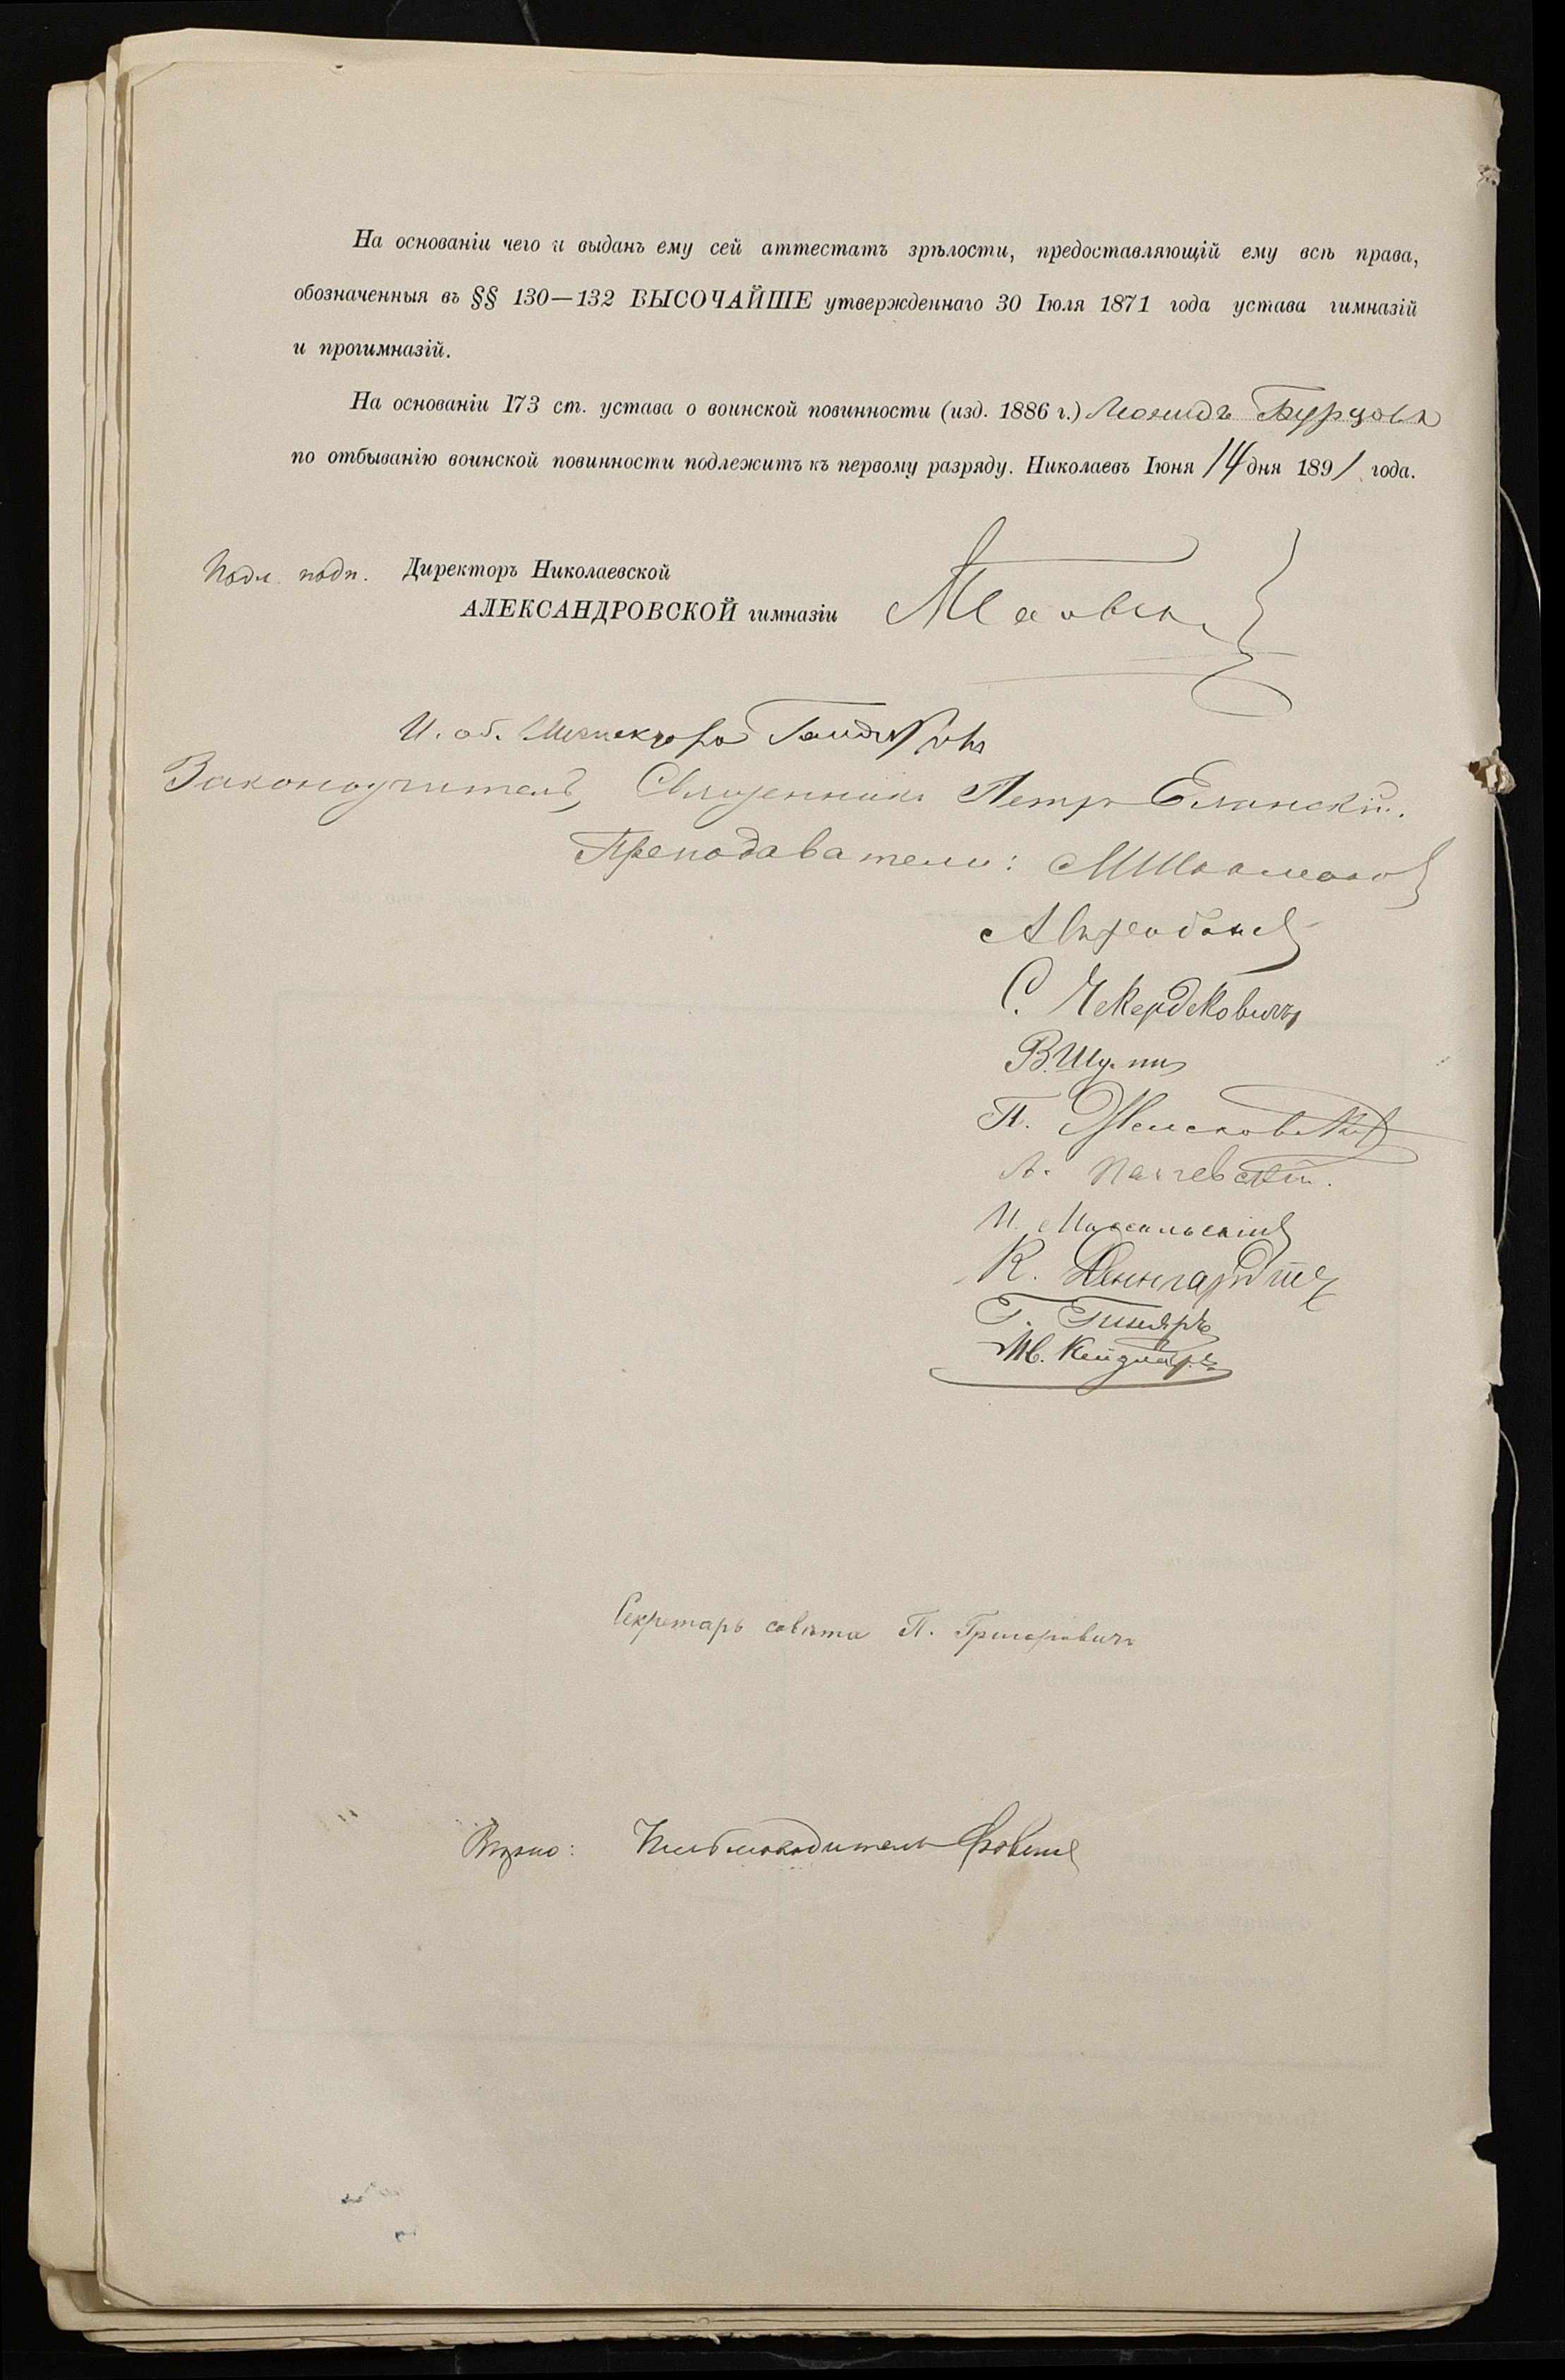 На основаніи чего и выданъ ему сей аттестатъ зрѣлости, предоставляющій ему всѣ права,
обозначенныя въ §§ 130—132 ВЫСОЧАЙШЕ утвержденнаго 30 Іюля 1871 года устава гимназій
и прогимназій.
На основаніи 173 ст. устава о воинской повинности (изд. 1886 г.) Леонидъ Бурцовъ
по отбыванію воинской повинности подлежитъ къ первому разряду. Николаевъ Іюня 14 дня 1891 года.
Подл. подп. Директоръ Николаевской
АЛЕКСАНДРОВСКОЙ гимназіи
И. об. Инспектора
Законоучитель, Священникъ Петръ Еланскій.
Преподаватели:
А.
С. Чекердековичъ
В.
П.
Л. Пачевскій.
И.
К. Деннгардтъ
Г.
Ив.
Секретарь совѣта П. Григоровичъ
Вѣрно: Письмоводитель